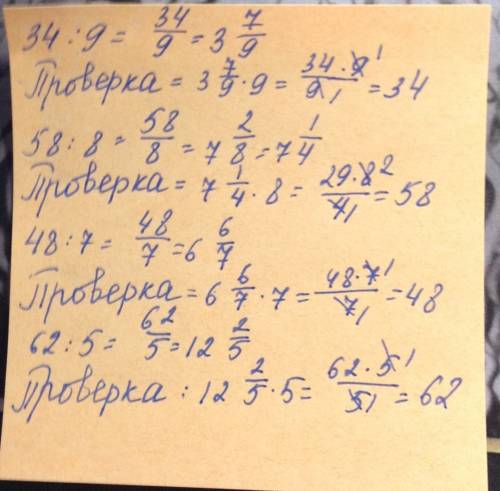 34 : 9 = 34/9 = 3 7/9
Проверка = 3 7/9 · 9 = 34 · 9 1 / 9 1 = 34
58 : 8 = 58/8 = 7 2/8 = 7 1/4
Проверка = 7 1/4 · 8 = 29 · 8 2 / 4 1 = 58
48 : 7 = 48/7 = 6 6/7
Проверка = 6 6/7 · 7 = 48 · 7 1 / 7 1 = 48
62 : 5 = 62/5 = 12 2/5
Проверка : 12 2/5 · 5 = 62 · 5 1 / 5 1 = 62